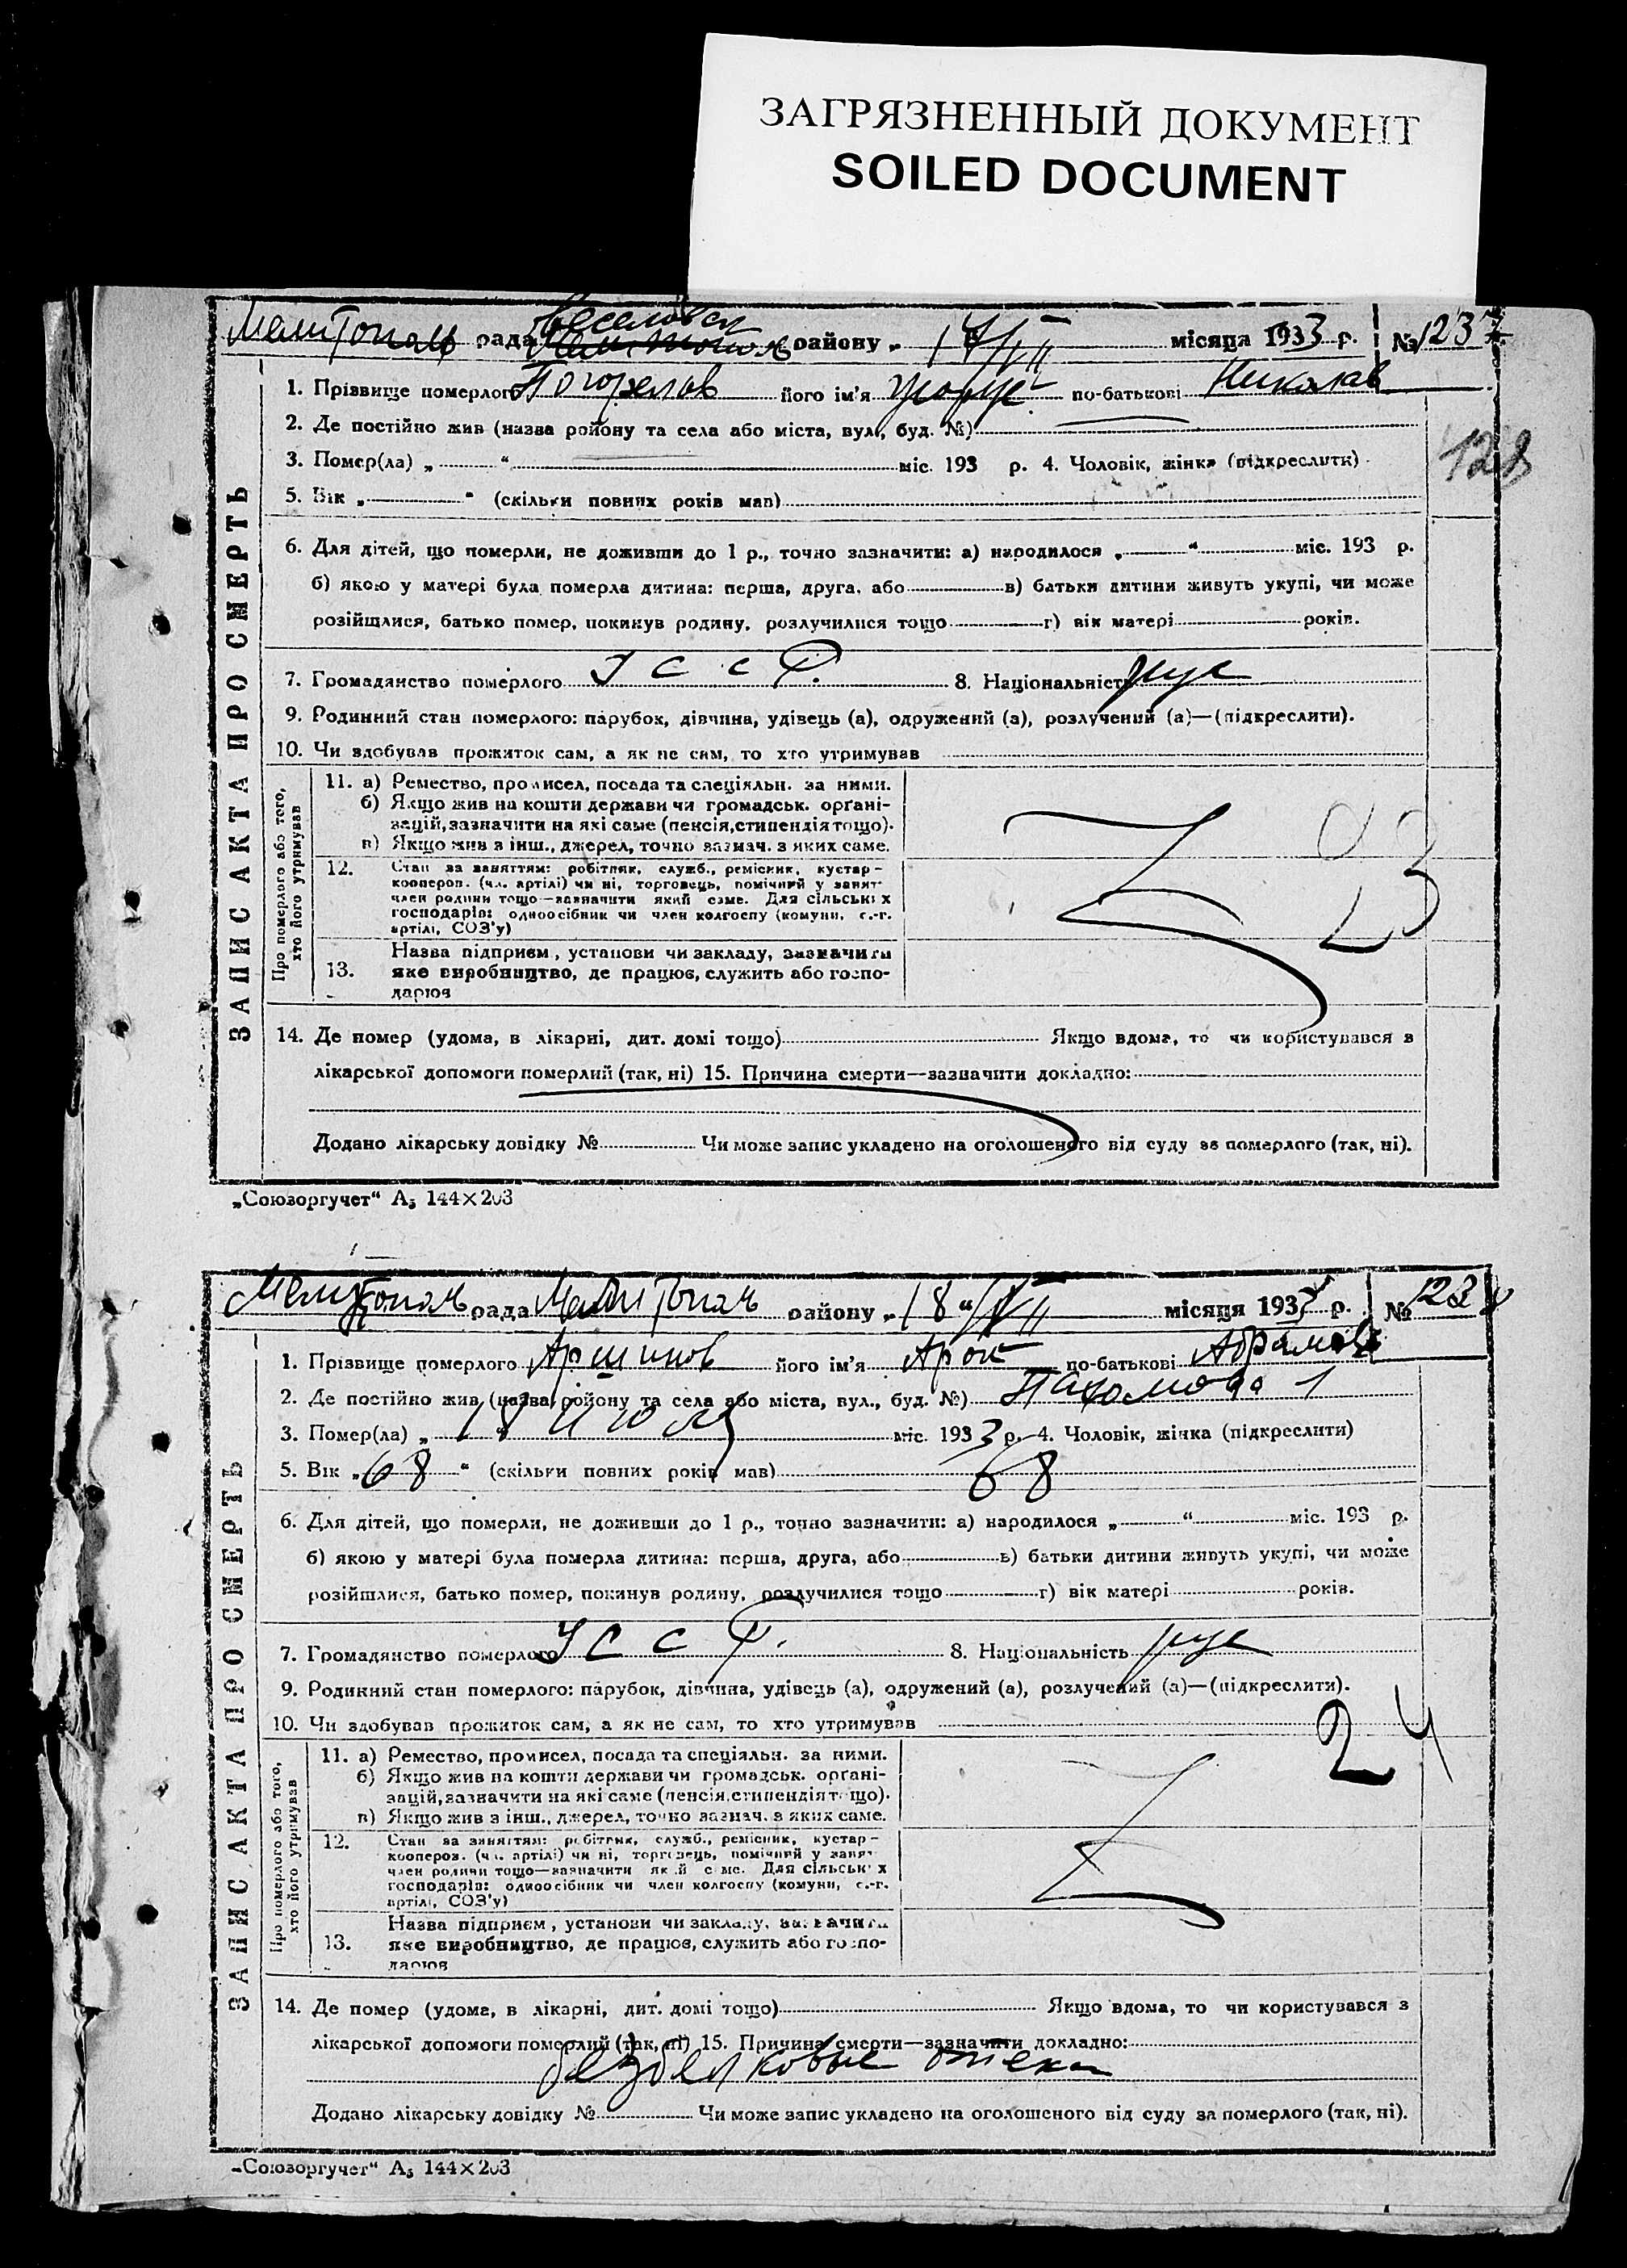 ЗАГРЯЗНЕННЫЙ ДОКУМЕНТ
SOILED DOCUMENT
Веселовск
Мелитополь рада Мелитополь району „ 17/VII місяця 1933 р. № 1237
ЗАПИС АКТА ПРО СМЕРТЬ
1. Прізвище померлого Погорелов його ім'я по-батькові Николав
2. Де постійно жив (назва району та села або міста, вул., буд. №)
128
3. Помер(ла) „ “ міс. 193 р. 4. Чоловік, жінка (підкреслити)
5. Вік „ “ (скільки повних років мав)
6. Для дітей, що померли, не доживши до 1 р., точно зазначити: а) народилося „ “ міс. 193 р.
б) якою у матері була померла дитина: перша, друга, або в) батьки дитини живуть укупі, чи може
розійшлися, батько помер, покинув родину, розлучилися тощо г) вік матері років.
7. Громадянство померлого УССР. 8. Національність рус
9. Родинний стан померлого: парубок, дівчина, удівець (а), одружений (а), розлучений (а)—(підкреслити).
10. Чи здобував прожиток сам, а як не сам, то хто утримував
Про померлого або того, хто його утримував
11. а) Ремество, промисел, посада та спеціяльн. за ними.
б) Якщо жив на кошти держави чи громадськ. органі-
зацій, зазначити на які саме (пенсія, стипендія тощо).
в) Якщо жив з інш., джерел, точно зазнач. з яких саме.
12. Стан за заняттям: робітник, служб., ремісник, кустар-
коопероз. (чл. артілі) чи ні, торговець, помічний у занят-
член родини тощо—зазначити який саме. Для сільських
господарів: одноосібник чи член колгоспу (комуни, с.-г.
артілі, СОЗ'у)
23
13. Назва підприєм, установи чи закладу, зазначити
яке виробництво, де працює, служить або госпо-
дарює
14. Де помер (удома, в лікарні, дит. домі тощо) Якщо вдома, то чи користувався з
лікарської допомоги померлий (так, ні) 15. Причина смерти—зазначити докладно:
Додано лікарську довідку № Чи може запис укладено на оголошеного від суду за померлого (так, ні).
„Союзоргучет“ А5 144×203
Мелитополь рада Мелитополь району „ 18 “ VII місяця 1933 р. № 1238
ЗАПИС АКТА ПРО СМЕРТЬ
1. Прізвище померлого Аршинов його ім'я Арон по-батькові Абрамов
2. Де постійно жив (назва району та села або міста, вул., буд. №) 1
3. Помер(ла) „ 17 июля міс. 1933 р. 4. Чоловік, жінка (підкреслити)
5. Вік „ 68 “ (скільки повних років мав) 68
6. Для дітей, що померли, не доживши до 1 р., точно зазначити: а) народилося „ “ міс. 193 р.
б) якою у матері була померла дитина: перша, друга, або в) батьки дитини живуть укупі, чи може
розійшлися, батько помер, покинув родину, розлучилися тощо г) вік матері років.
7. Громадянство померлого УССР. 8. Національність рус
9. Родинний стан померлого: парубок, дівчина, удівець (а), одружений (а), розлучений (а)—(підкреслити).
10. Чи здобував прожиток сам, а як не сам, то хто утримував
24
Про померлого або того, хто його утримував
11. а) Ремество, промисел, посада та спеціяльн. за ними.
б) Якщо жив на кошти держави чи громадськ. органі-
зацій, зазначити на які саме (пенсія, стипендія тощо).
в) Якщо жив з інш., джерел, точно зазнач. з яких саме.
12. Стан за заняттям: робітник, служб., ремісник, кустар-
коопероз. (чл. артілі) чи ні, торговець, помічний у занят-
член родини тощо—зазначити який саме. Для сільських
господарів: одноосібник чи член колгоспу (комуни, с.-г.
артілі, СОЗ'у)
13. Назва підприєм, установи чи закладу, зазначити
яке виробництво, де працює, служить або госпо-
дарює
14. Де помер (удома, в лікарні, дит. домі тощо) Якщо вдома, то чи користувався з
лікарської допомоги померлий (так, ні) 15. Причина смерти—зазначити докладно:
безбелковые отеки
Додано лікарську довідку № Чи може запис укладено на оголошеного від суду за померлого (так, ні).
„Союзоргучет“ А5 144×203